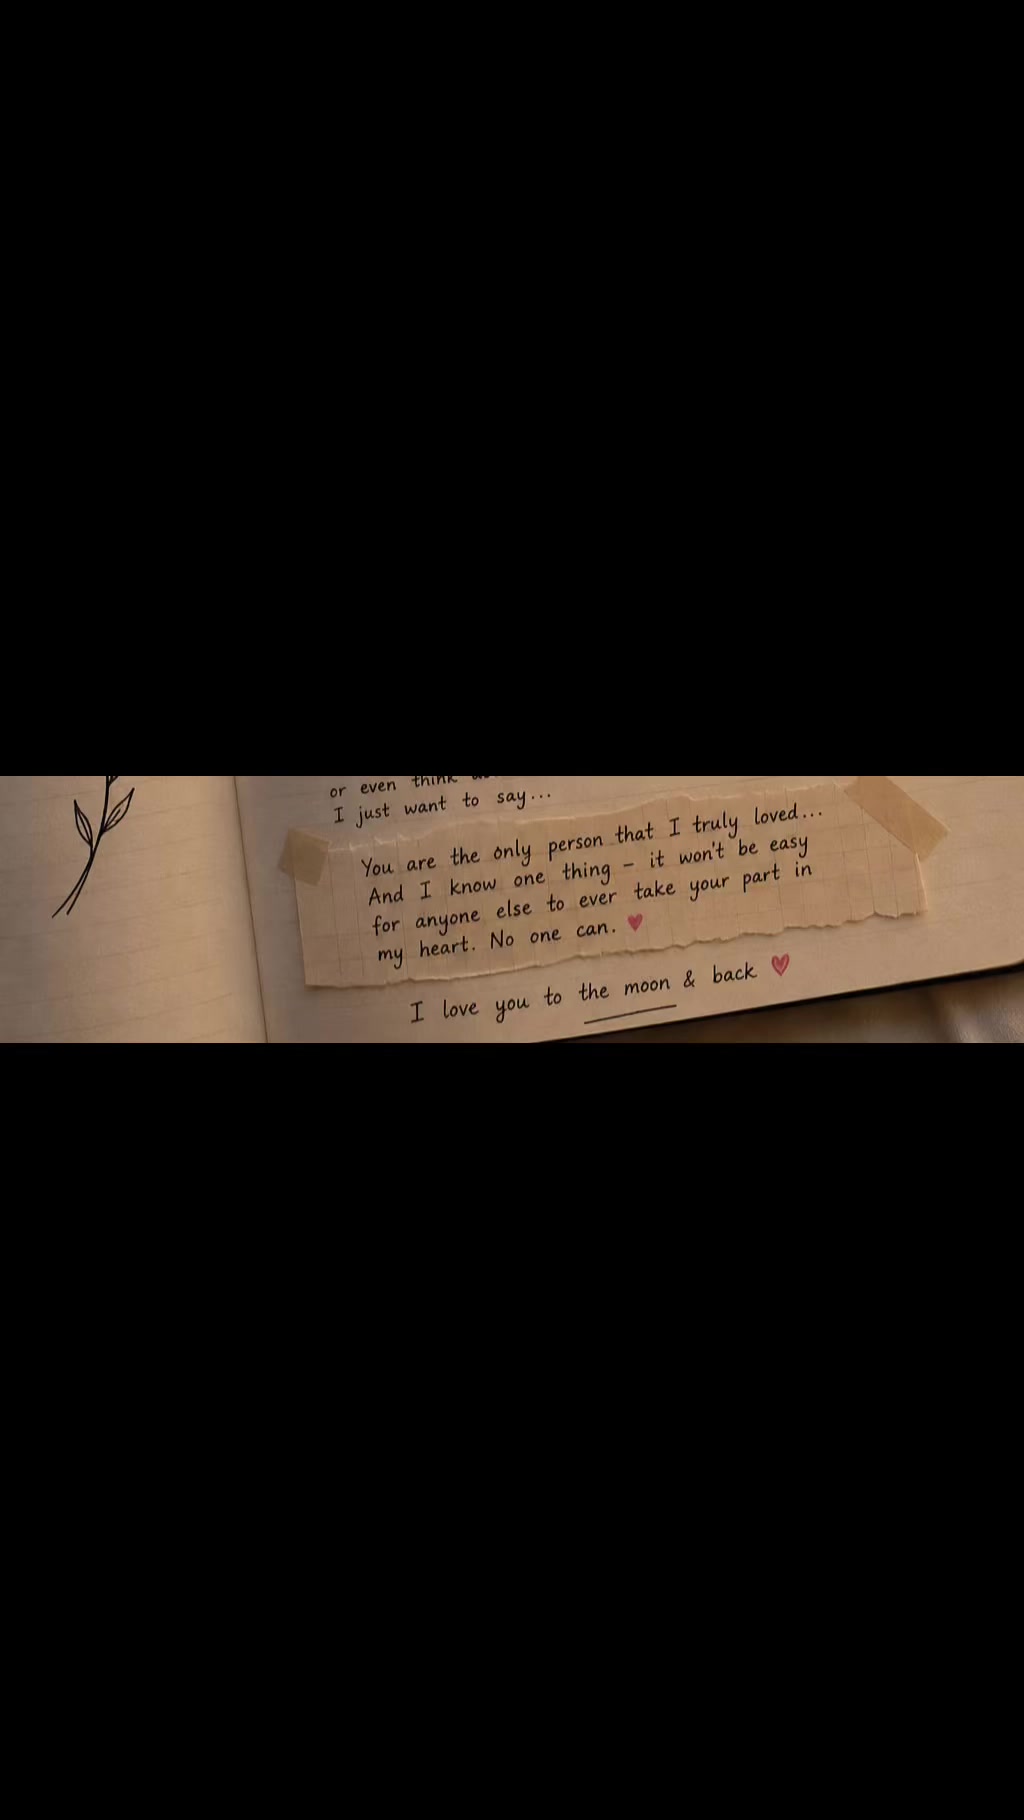 or even think
I just want to say...
You are the only person that I truly loved...
And I know one thing – it won't be easy
for anyone else to ever take your part in
my heart. No one can. ♥
I love you to the moon & back ♥